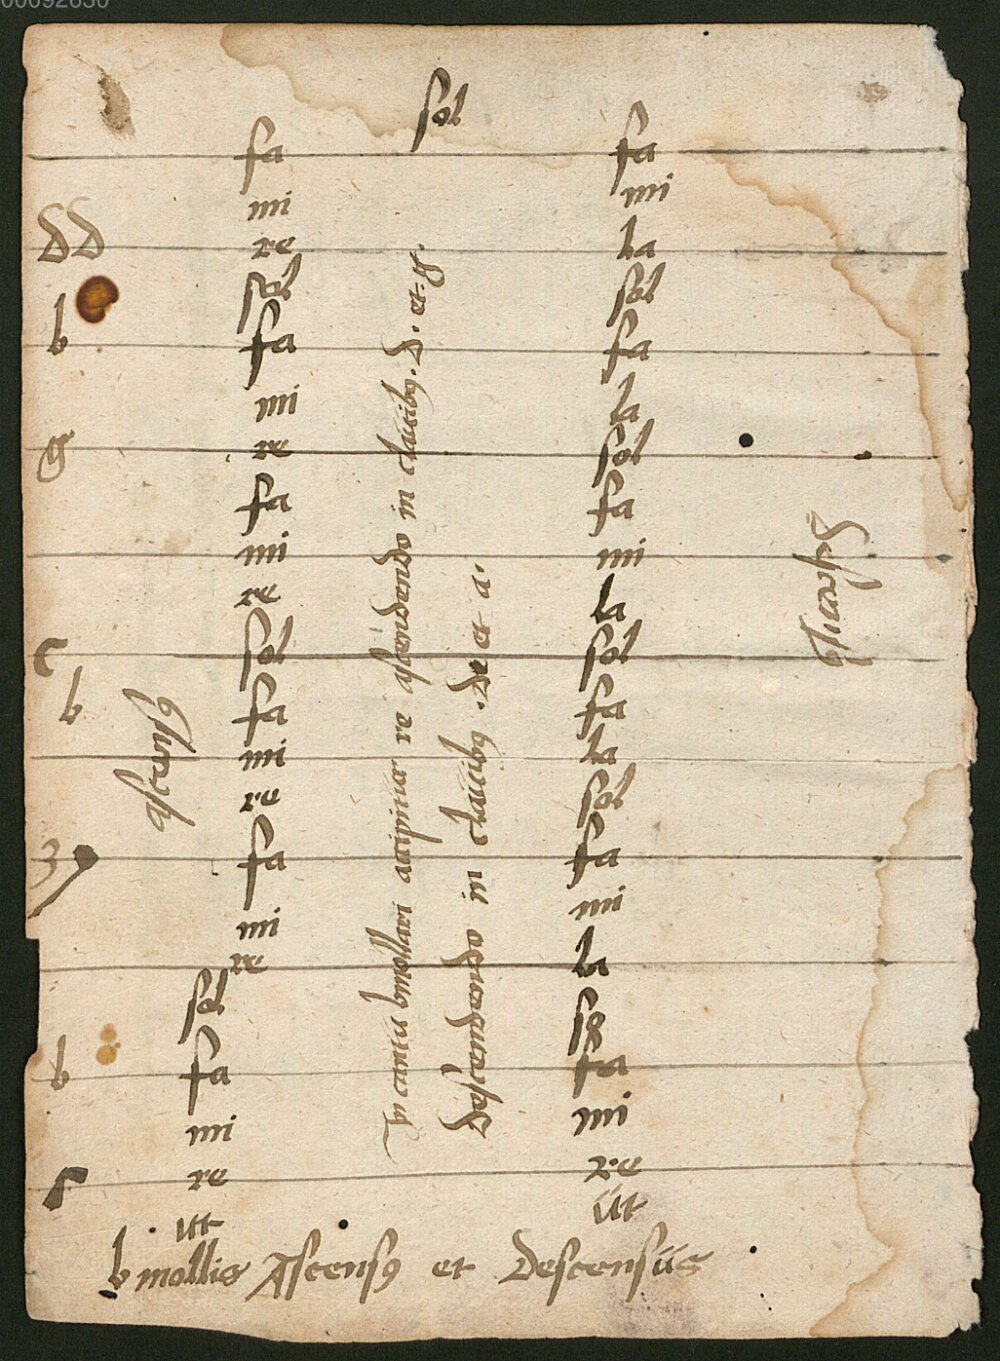 00092830
sol
fa fa
mi mi
dd re la
sol sol
b fa fa
mi la
g re sol
fa fa
mi mi
re la
c sol sol
b fa fa
mi la
re sol
fa fa
mi mi
re la
sol sol
b fa fa
mi mi
Γ re re
ut ut
Ascensus
In cantu bmollari accipitur re ascendendo in clauibus. d. et. g.
descendendo in clauibus. d. et a.
Descensus
b mollis Ascensus et descensus